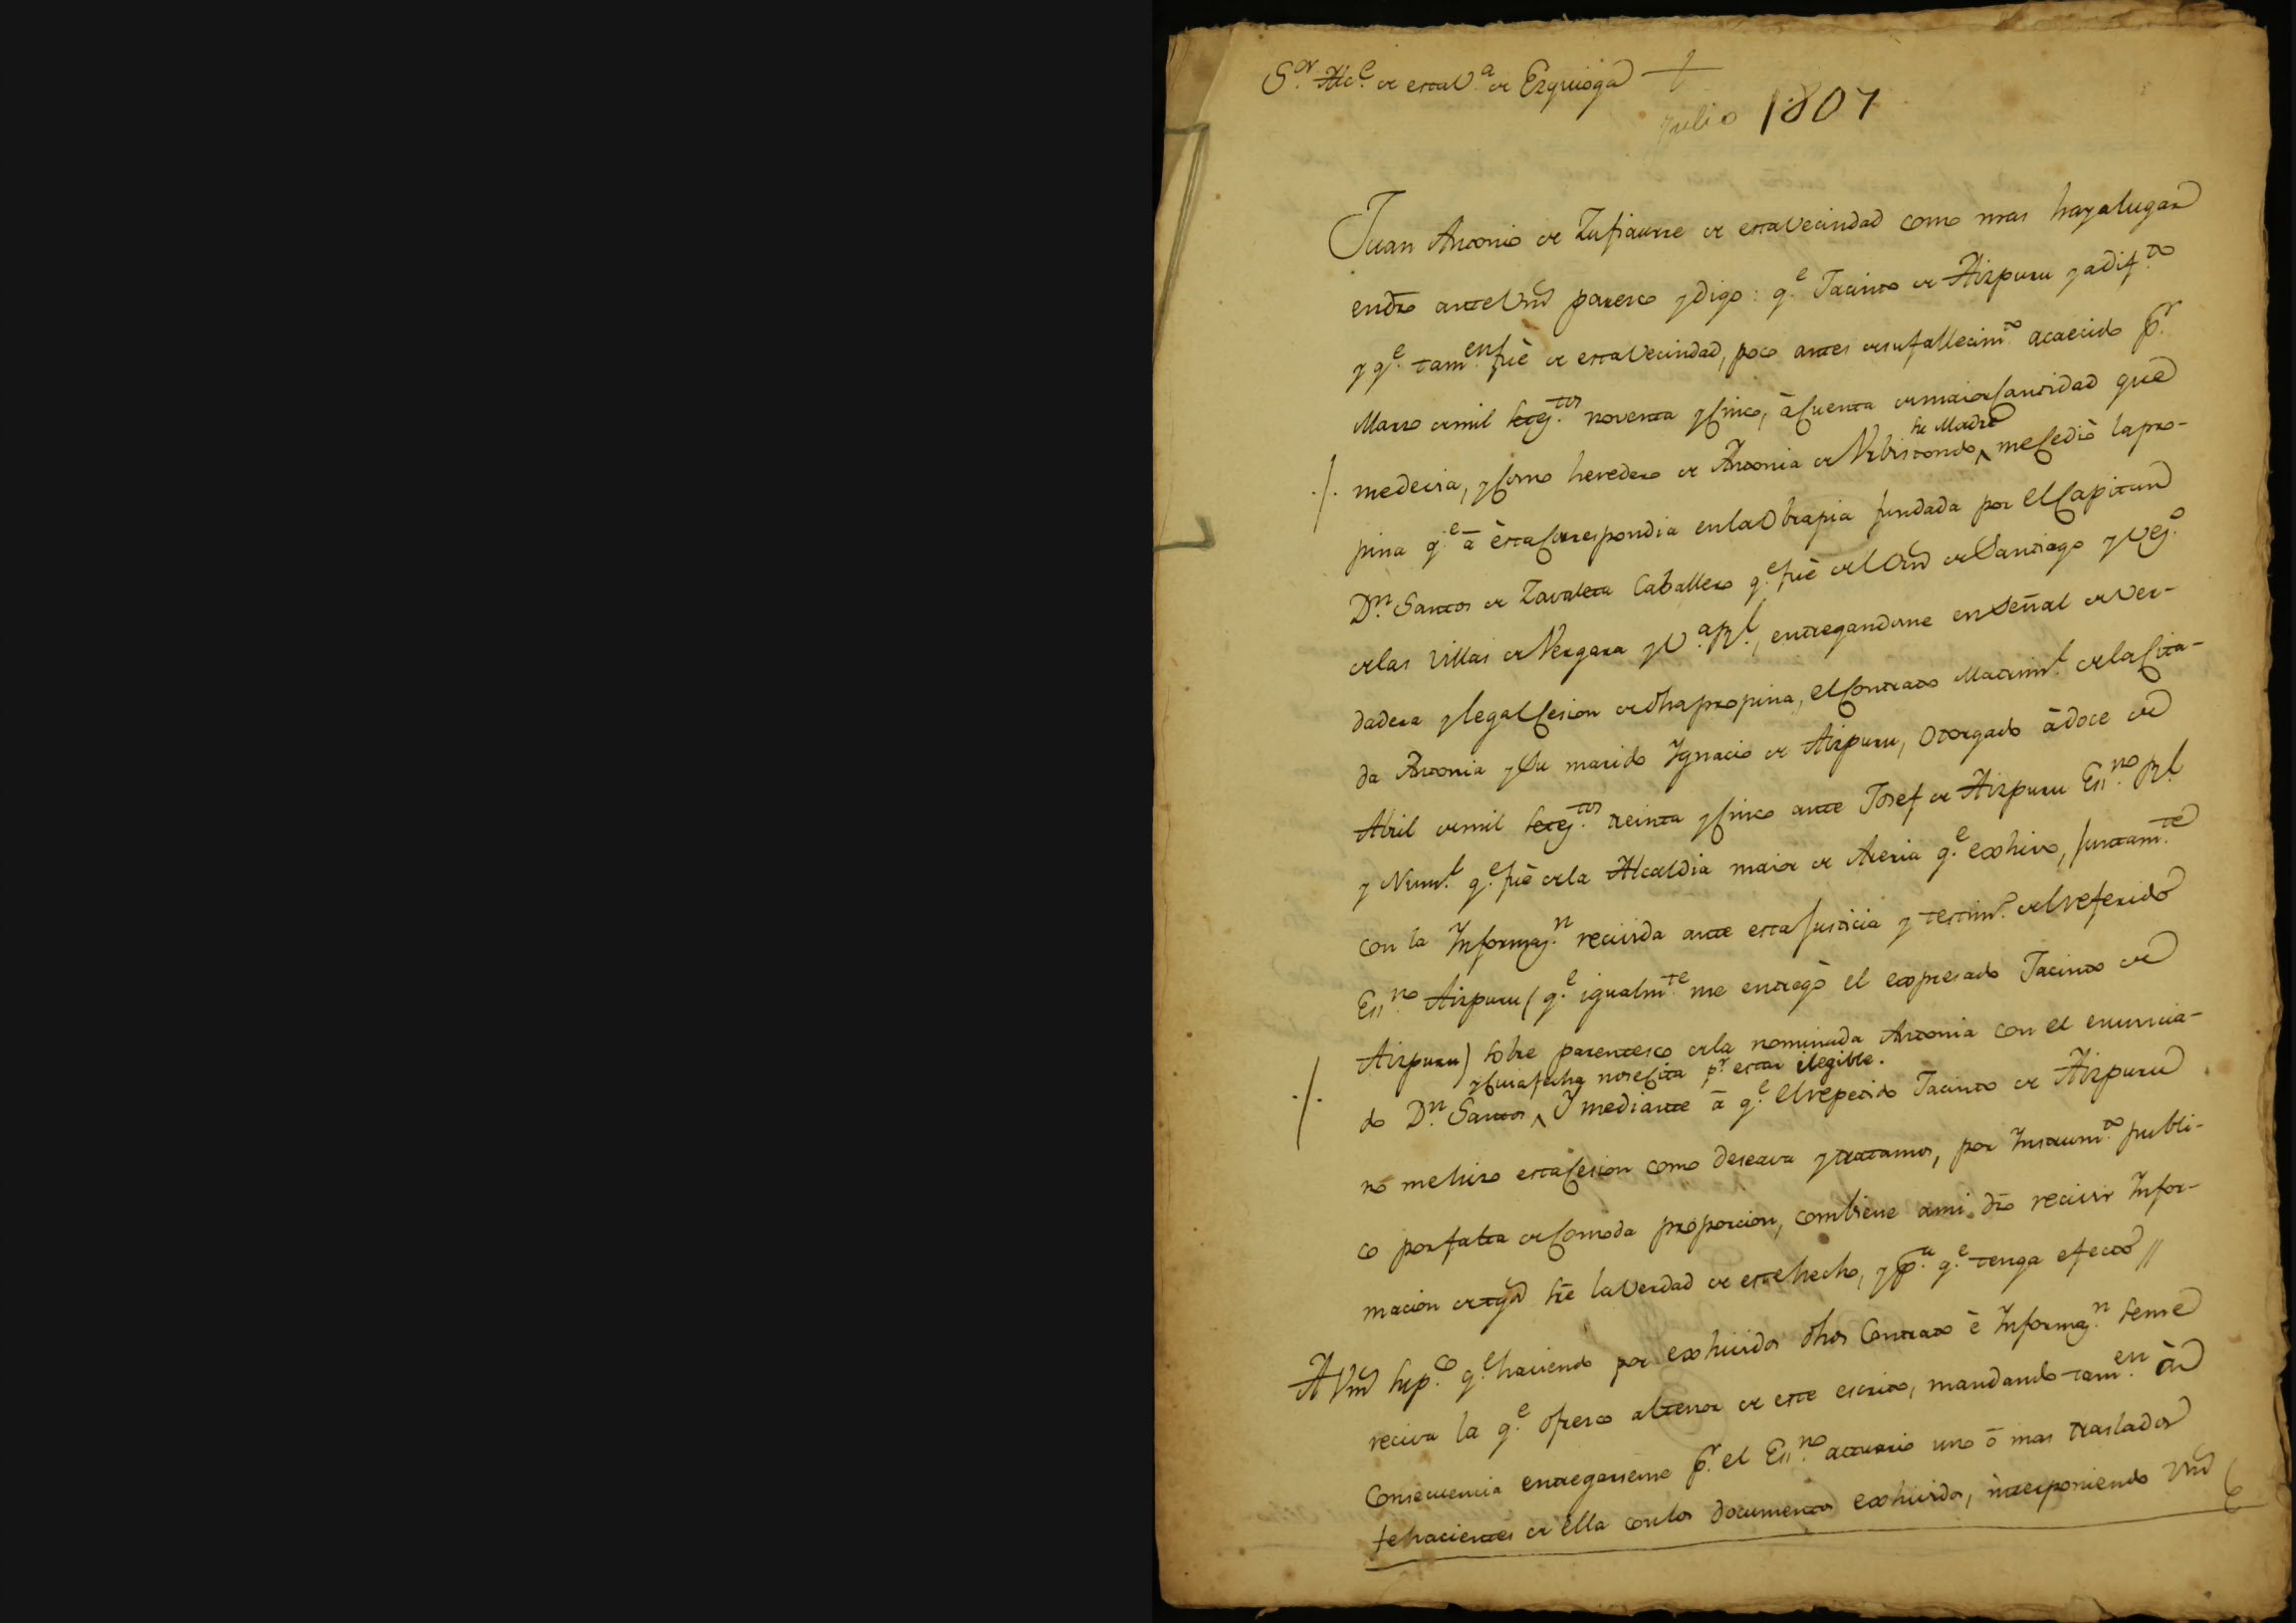 S.or Alc.e de esta V.a de Ezquioga
Julio 1807
Juan Antonio de Zufiaurre de esta Vecindad como mas haya lugar
en dro ante Vmd paresco y digo: q.e Jacinto de Aizpuru ya dif.to
y q.e tam.en fuè de esta Vecindad, poco antes de su fallecim.to acaecido p.r
Marzo de mil seteg.tos noventa y Cinco, à Cuenta de maior Cantidad que
me devia, y Como heredero de Antonia de Urbiztondo su Madre me Cediò la pro-
pina q.e à èsta Correspondia en la Obrapia fundada por el Capitan
D.n Santos de Zavaleta Caballero q.e fuè del Orn de Santiago y Veg.o
de las Villas de Vergara y V.a R.l, entregandome en Señal de ver-
dadera y legal Cesion de dha propina, el Contrato Matrim.l de la Cita-
da Antonia y Su marido Ygnacio de Aizpuru, Otorgado à doce de
Abril de mil seteg.tos treinta y Cinco ante Josef de Aizpuru Ess.no R.l
y Num.l q.e fuè de la Alcaldia maior de Areria q.e exhivo, juntam.te
con la Informaz.n recivida ante esta Justicia y testim.o del referido
Ess.no Aizpuru (q.e igualm.te me entregò el expresado Jacinto de
Aizpuru) sobre parentesco de la nominada Antonia con el enuncia-
do D.n Santos, y Cuia fecha no se Cita p.r estar ilegible. Y mediante à q.e el repetido Jacinto de Aizpuru
no me hizo esta Cesion como deseava y tratamos, por Instrum.to publi-
co por falta de Comoda proporcion, combiene a mi dro recivir Infor-
macion de tgõs sre la Verdad de este hecho, y p.a q.e tenga efecto //
A Vmd sup.co q.e haviendo por exhividos dhos Contrato è Informaz.n se me
reciva la q.e ofresco al tenor de este escrito, mandando tam.en à
Consecuencia entregarseme p.r el Ess.no actuario uno ò mas traslados
fehacientes de ella con los documentos exhividos, interponiendo Vmd